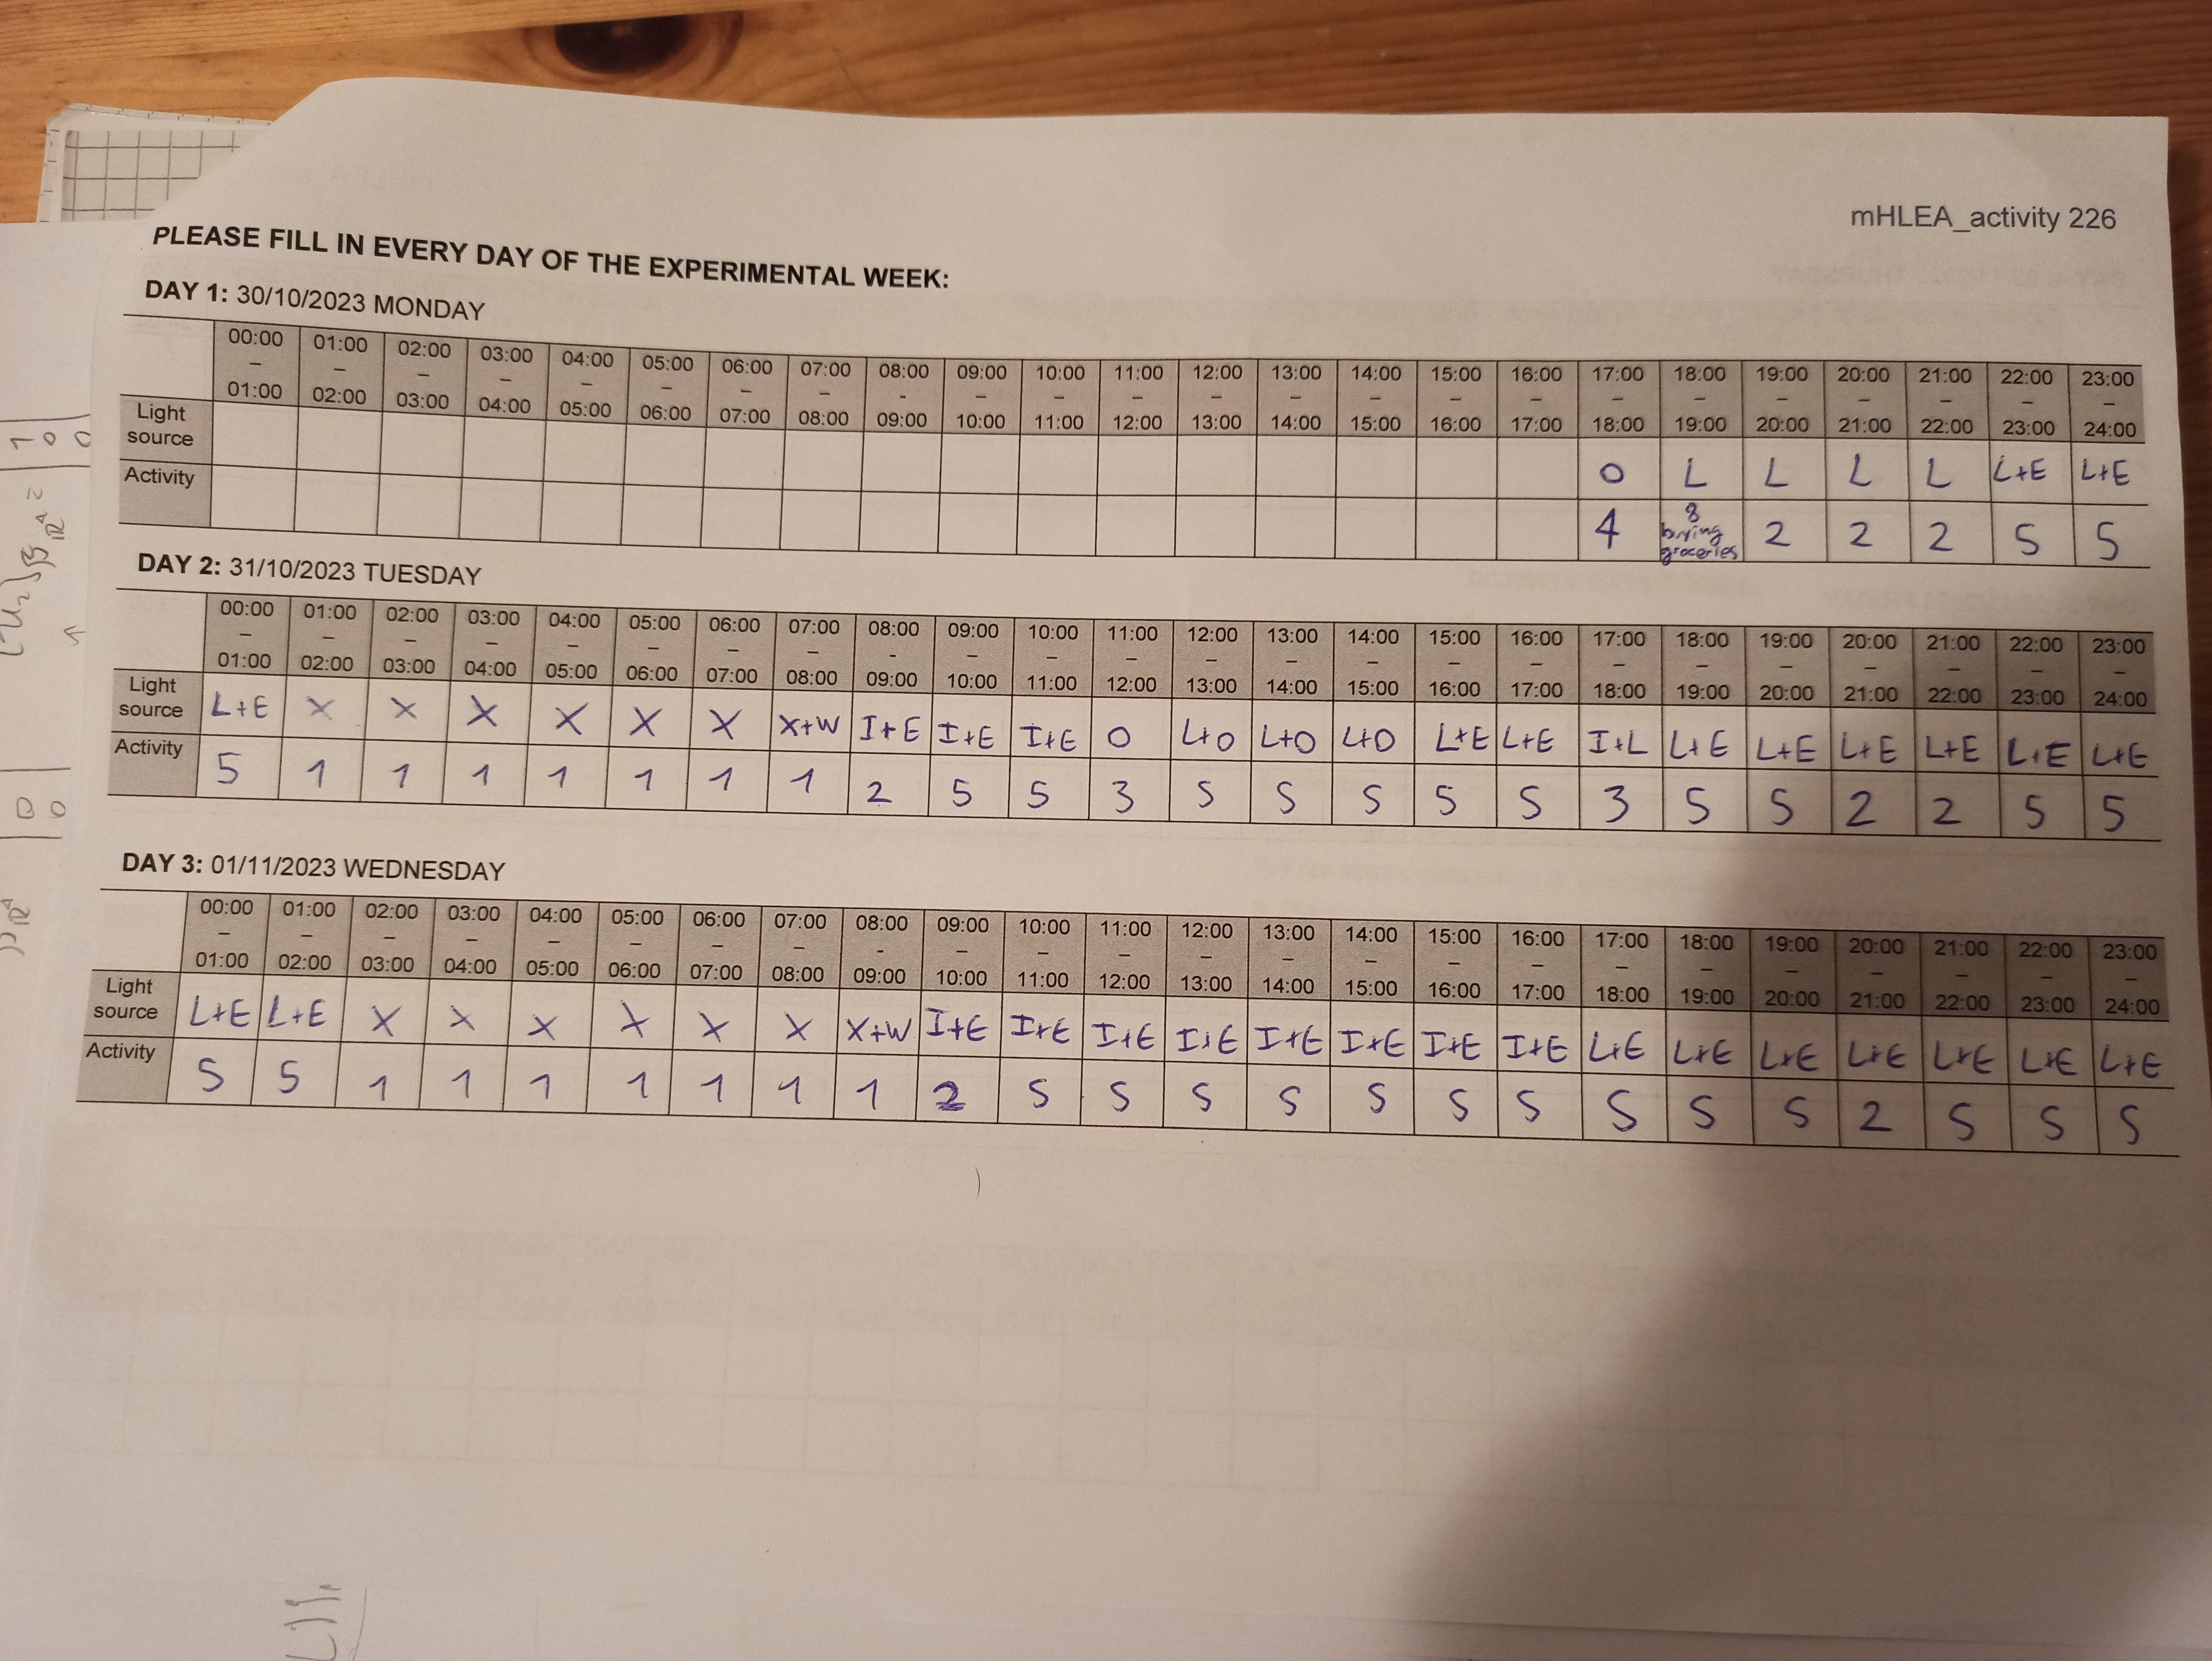 mHLEA_activity 226
PLEASE FILL IN EVERY DAY OF THE EXPERIMENTAL WEEK:
DAY 1: 30/10/2023 MONDAY
00:00 – 01:00 01:00 – 02:00 02:00 – 03:00 03:00 – 04:00 04:00 – 05:00 05:00 – 06:00 06:00 – 07:00 07:00 – 08:00 08:00 – 09:00 09:00 – 10:00 10:00 – 11:00 11:00 – 12:00 12:00 – 13:00 13:00 – 14:00 14:00 – 15:00 15:00 – 16:00 16:00 – 17:00 17:00 – 18:00 18:00 – 19:00 19:00 – 20:00 20:00 – 21:00 21:00 – 22:00 22:00 – 23:00 23:00 – 24:00
Light source O L L L L L+E L+E
Activity 4 8 buying groceries 2 2 2 5 5
DAY 2: 31/10/2023 TUESDAY
00:00 – 01:00 01:00 – 02:00 02:00 – 03:00 03:00 – 04:00 04:00 – 05:00 05:00 – 06:00 06:00 – 07:00 07:00 – 08:00 08:00 - 09:00 09:00 – 10:00 10:00 – 11:00 11:00 – 12:00 12:00 – 13:00 13:00 – 14:00 14:00 – 15:00 15:00 – 16:00 16:00 – 17:00 17:00 – 18:00 18:00 – 19:00 19:00 – 20:00 20:00 – 21:00 21:00 – 22:00 22:00 – 23:00 23:00 – 24:00
Light source L+E X X X X X X X+W I+E I+E I+E O L+O L+O L+O L+E L+E I+L L+E L+E L+E L+E L+E L+E
Activity 5 1 1 1 1 1 1 1 2 5 5 3 5 5 5 5 5 3 5 5 2 2 5 5
DAY 3: 01/11/2023 WEDNESDAY
00:00 – 01:00 01:00 – 02:00 02:00 – 03:00 03:00 – 04:00 04:00 – 05:00 05:00 – 06:00 06:00 – 07:00 07:00 – 08:00 08:00 - 09:00 09:00 – 10:00 10:00 – 11:00 11:00 – 12:00 12:00 – 13:00 13:00 – 14:00 14:00 – 15:00 15:00 – 16:00 16:00 – 17:00 17:00 – 18:00 18:00 – 19:00 19:00 – 20:00 20:00 – 21:00 21:00 – 22:00 22:00 – 23:00 23:00 – 24:00
Light source L+E L+E X X X X X X X+W I+E I+E I+E I+E I+E I+E I+E I+E L+E L+E L+E L+E L+E L+E L+E
Activity 5 5 1 1 1 1 1 1 1 2 5 5 5 5 5 5 5 5 5 5 2 5 5 5